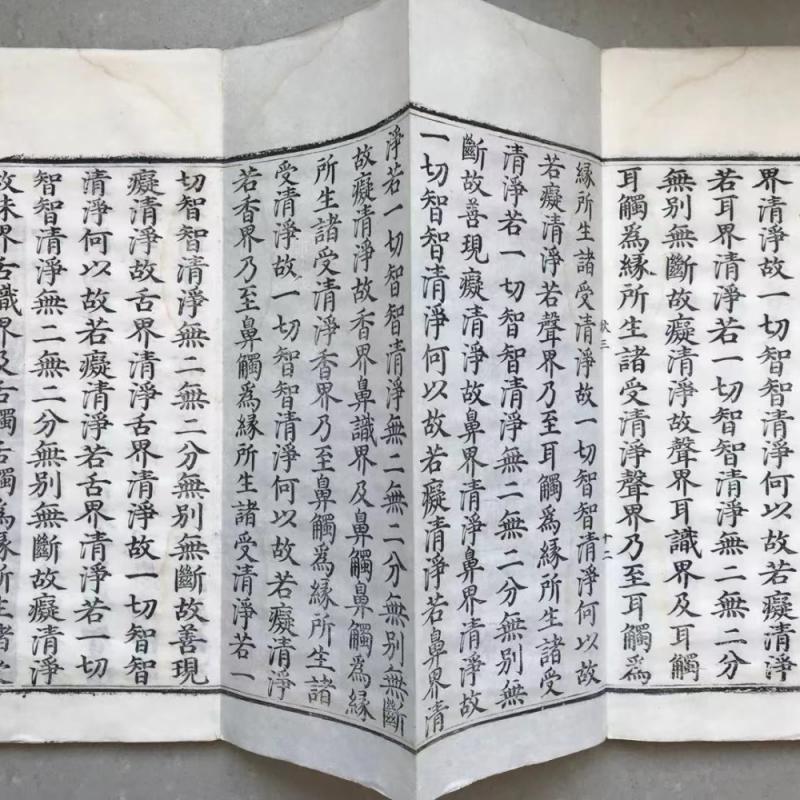 界清淨故一切智智清淨何以故若癡清淨
若耳界清淨若一切智智清淨無二無二分
無別無斷故癡清淨故聲界耳識界及耳觸
耳觸為緣所生諸受清淨聲界乃至耳觸為
三 十二
緣所生諸受清淨故一切智智清淨何以故
若癡清淨若聲界乃至耳觸為緣所生諸受
清淨若一切智智清淨無二無二分無別無
斷故善現癡清淨故鼻界清淨鼻界清淨故
一切智智清淨何以故若癡清淨若鼻界清
淨若一切智智清淨無二無二分無別無斷
故癡清淨故香界鼻識界及鼻觸鼻觸為緣
所生諸受清淨香界乃至鼻觸為緣所生諸
受清淨故一切智智清淨何以故若癡清淨
若香界乃至鼻觸為緣所生諸受清淨若一
切智智清淨無二無二分無別無斷故善現
癡清淨故舌界清淨舌界清淨故一切智智
清淨何以故若癡清淨若舌界清淨若一切
智智清淨無二無二分無別無斷故癡清淨
故味界舌識界及舌觸舌觸為緣所生諸受